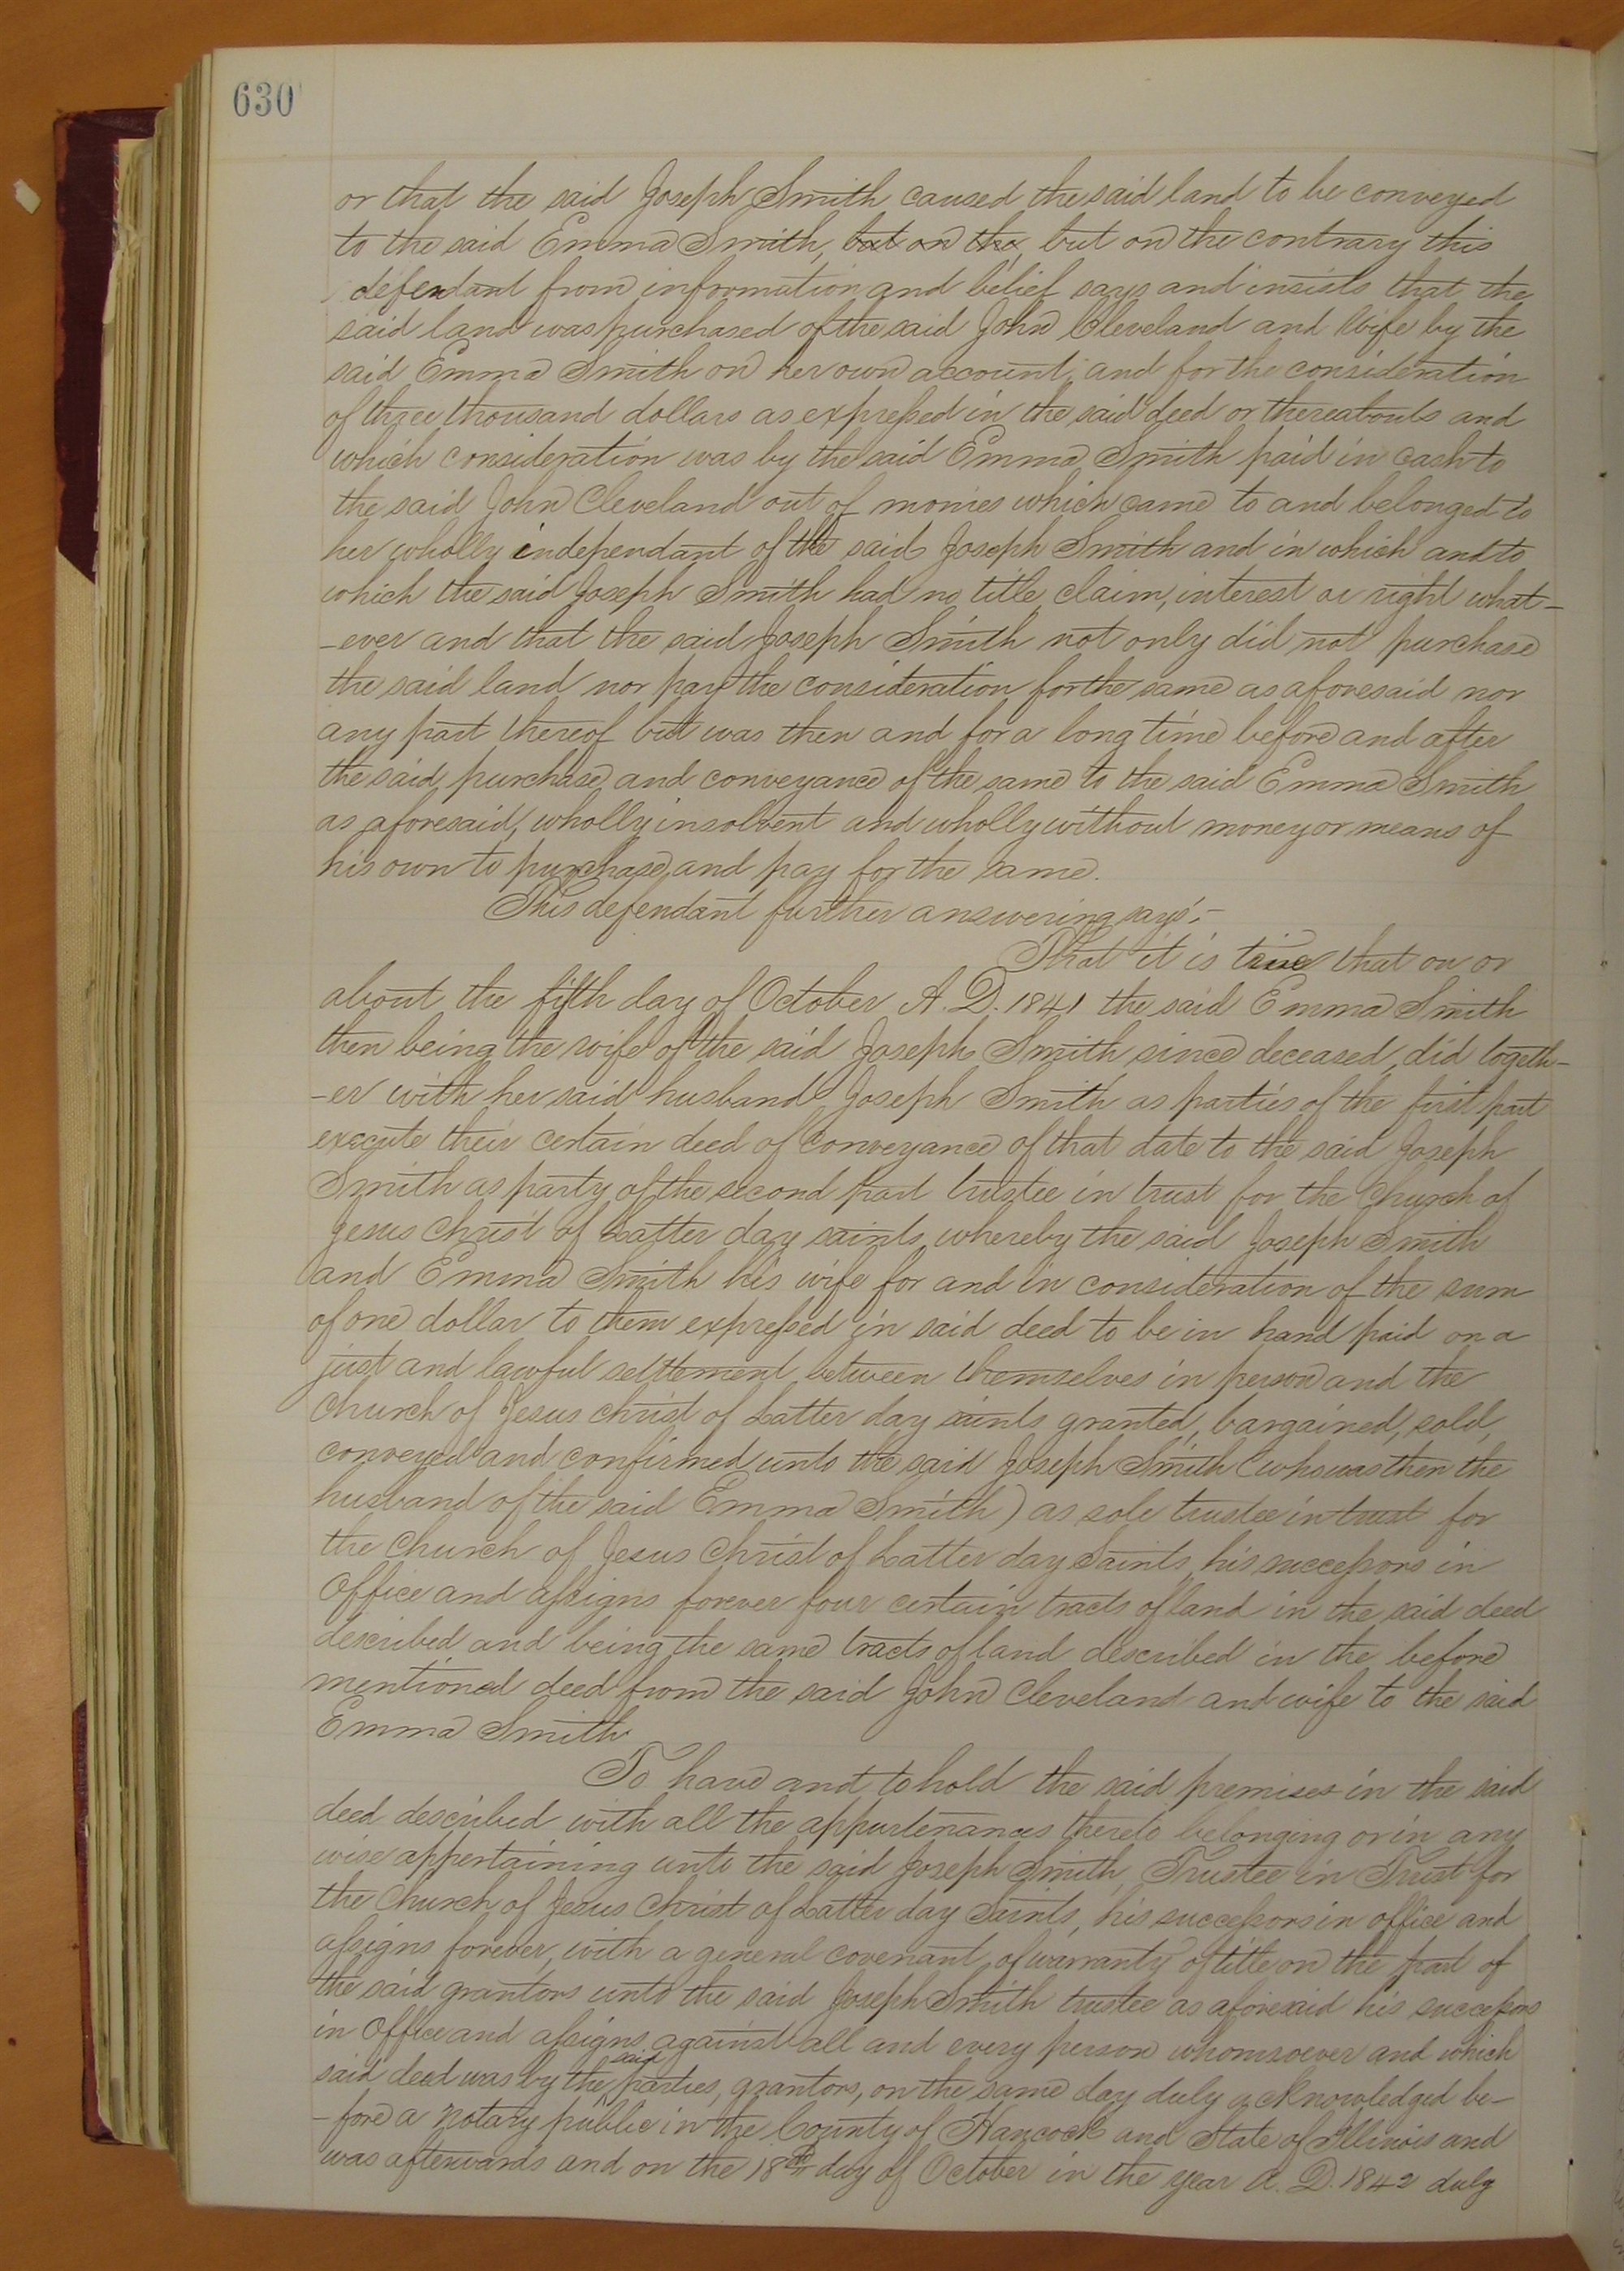 630
or that the said Joseph Smith caused the said land to be conveyed
to the said Emma Smith, but on the, but on the contrary this
defendant from information and belief says and insists that the
said land was purchased of the said John Cleveland and Wife by the
said Emma Smith on her own account, and for the consideration
of three thousand dollars as expressed in the said deed or thereabouts and
which consideration was by the said Emma Smith paid in cash to
the said John Cleveland out of monies which came to and belonged to
her wholly independant of the said Joseph Smith and in which and to
which the said Joseph Smith had no title, claim, interest or right what-
-ever and that the said Joseph Smith not only did not purchase
the said land nor pay the consideration for the same as aforesaid nor
any part thereof but was then and for a long time before and after
the said purchase and conveyance of the same to the said Emma Smith
as aforesaid, wholly insolvent and wholly without money or means of
his own to purchase and pay for the same.
This defendant further answering says:-
That it is true that on or
about the fifth day of October A. D. 1841 the said Emma Smith
then being the wife of the said Joseph Smith since deceased, did togeth-
-er with her said husband Joseph Smith as parties of the first part
execute their certain deed of conveyance of that date to the said Joseph
Smith as party of the second part trustee in trust for the Church of
Jesus Christ of Latter day saints, whereby the said Joseph Smith
and Emma Smith his wife for and in consideration of the sum
of one dollar to them expressed in said deed to be in hand paid on a
just and lawful settlement between themselves in person and the
Church of Jesus Christ of Latter day saints granted, bargained, sold,
conveyed and confirmed unto the said Joseph Smith (who was then the
husband of the said Emma Smith) as sole trustee in trust for
the Church of Jesus Christ of Latter day Saints, his successors in
Office and assigns forever four certain tracts of land in the said deed
described and being the same tracts of land described in the before
mentioned deed from the said John Cleveland and wife to the said
Emma Smith.
To have and to hold the said premises in the said
deed described with all the appurtenances thereto belonging or in any
wise appertaining unto the said Joseph Smith, Trustee in Trust for
the Church of Jesus Christ of Latter day Saints, his successors in office and
assigns forever, with a general covenant of warranty of title on the part of
the said grantors unto the said Joseph Smith trustee as aforesaid his successors
in Office and assigns against all and every person whomsoever and which
said deed was by the said parties, grantors, on the same day duly acknowledged be-
-fore a Notary public in the County of Hancock and State of Illinois and
was afterwards and on the 18th day of October in the year A. D. 1842 duly